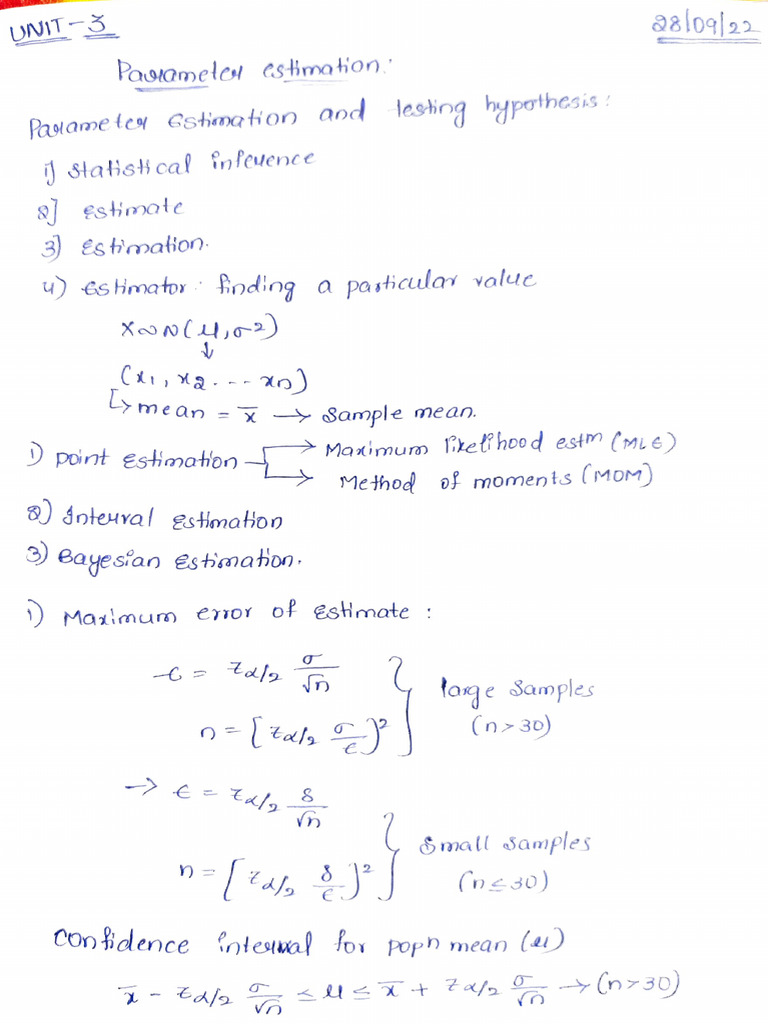 UNIT-3 28/09/22
Parameter estimation:
Parameter Estimation and testing hypothesis:
1) Statistical inference
2] estimate
3) Estimation.
4) Estimator: finding a particular value
X~N(μ,σ2)
↓
(x1, x2. --- xn)
↳ mean = x̄ → Sample mean.
1) point Estimation → Maximum likelihood estm (MLE)
→ Method of moments (MOM)
2) Interval Estimation
3) Bayesian Estimation.
1) Maximum error of Estimate :
-E = zα/2 σ/√n
n = [zα/2 σ/E]² } large samples (n>30)
→ E = zα/2 s/√n
n = [zα/2 s/E]² } Small samples (n≤30)
Confidence interval for popn mean (μ)
x̄ - zα/2 σ/√n ≤ μ ≤ x̄ + zα/2 σ/√n → (n>30)